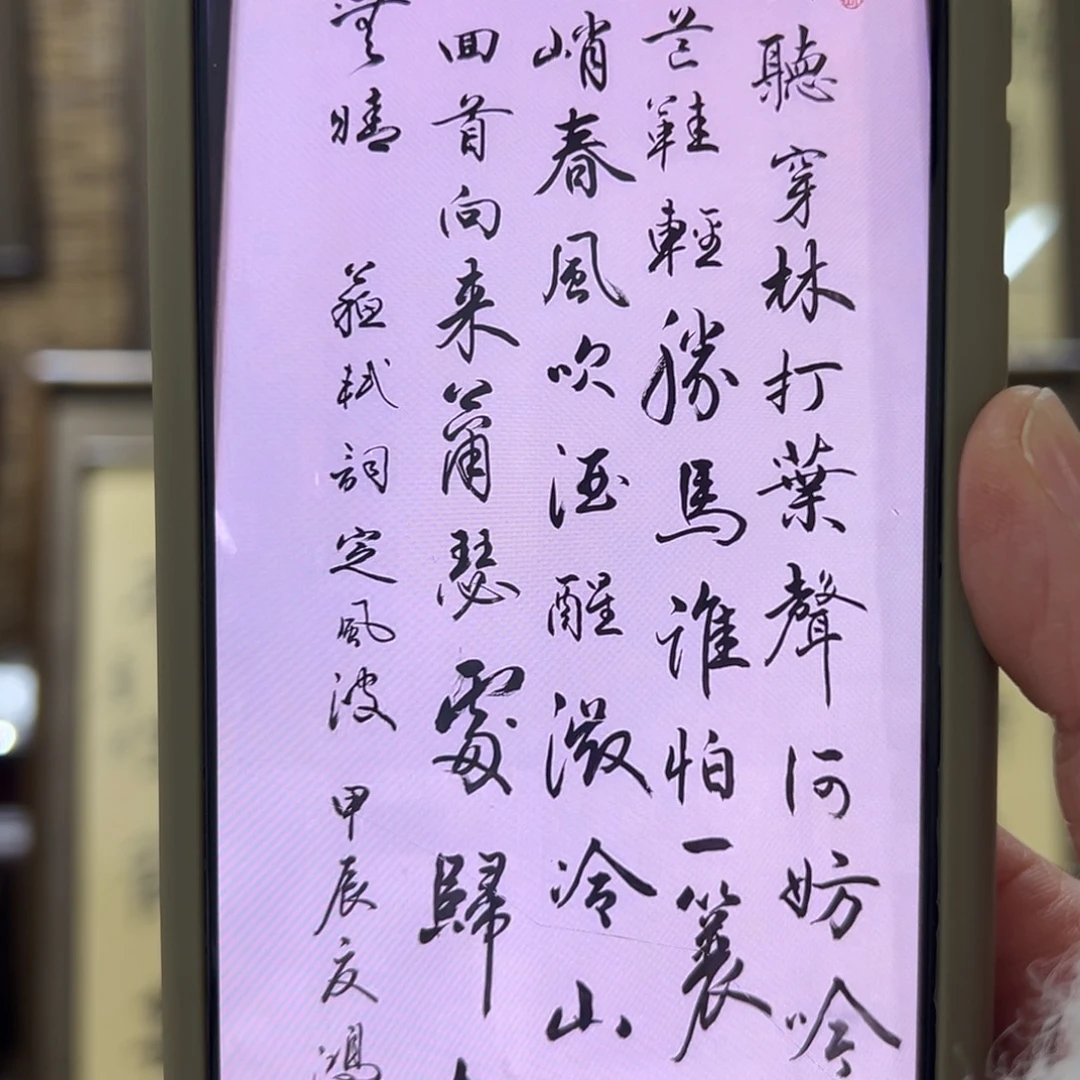 聽穿林打葉聲何妨吟
芒鞋輕勝馬誰怕一蓑
峭春風吹酒醒微冷山
回首向来蕭瑟處歸
無晴 蘇軾詞定風波 甲辰友鴻